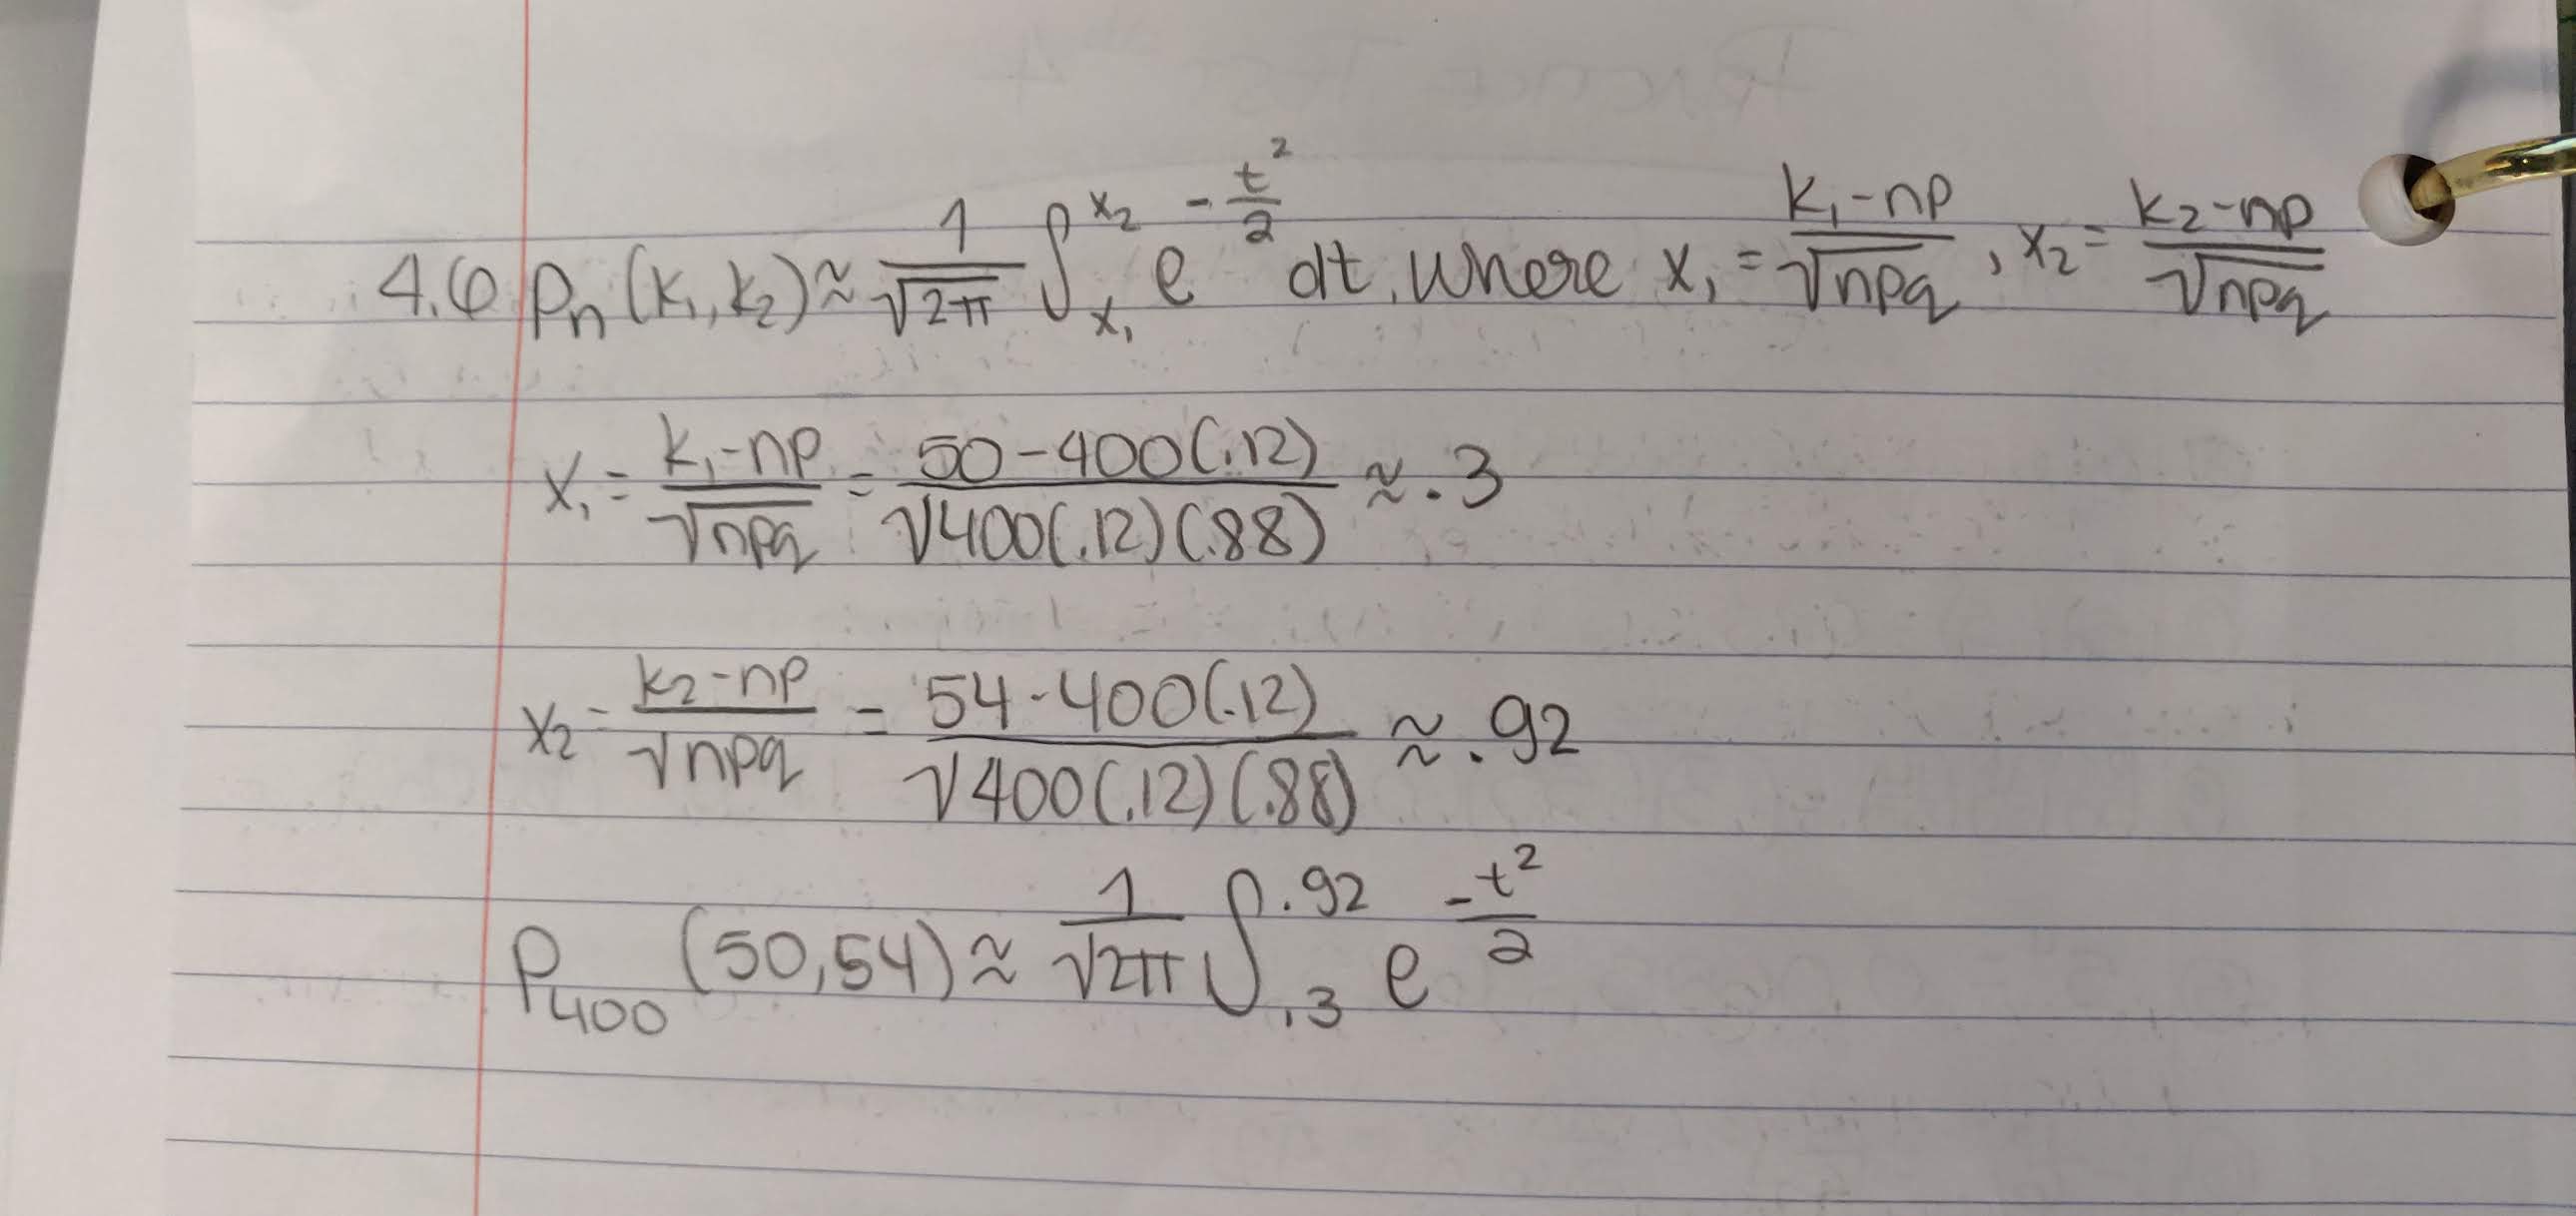 4.6 Pn(k₁,k₂) ≈ 1/√2π ∫_x₁^x₂ e^-t²/2 dt, where x₁ = k₁-np/√npq, x₂ = k₂-np/√npq
x₁ = k₁-np/√npq = 50-400(.12)/√400(.12)(.88) ≈ .3
x₂ = k₂-np/√npq = 54-400(.12)/√400(.12)(.88) ≈ .92
P₄₀₀(50,54) ≈ 1/√2π ∫_.3^.92 e^-t²/2